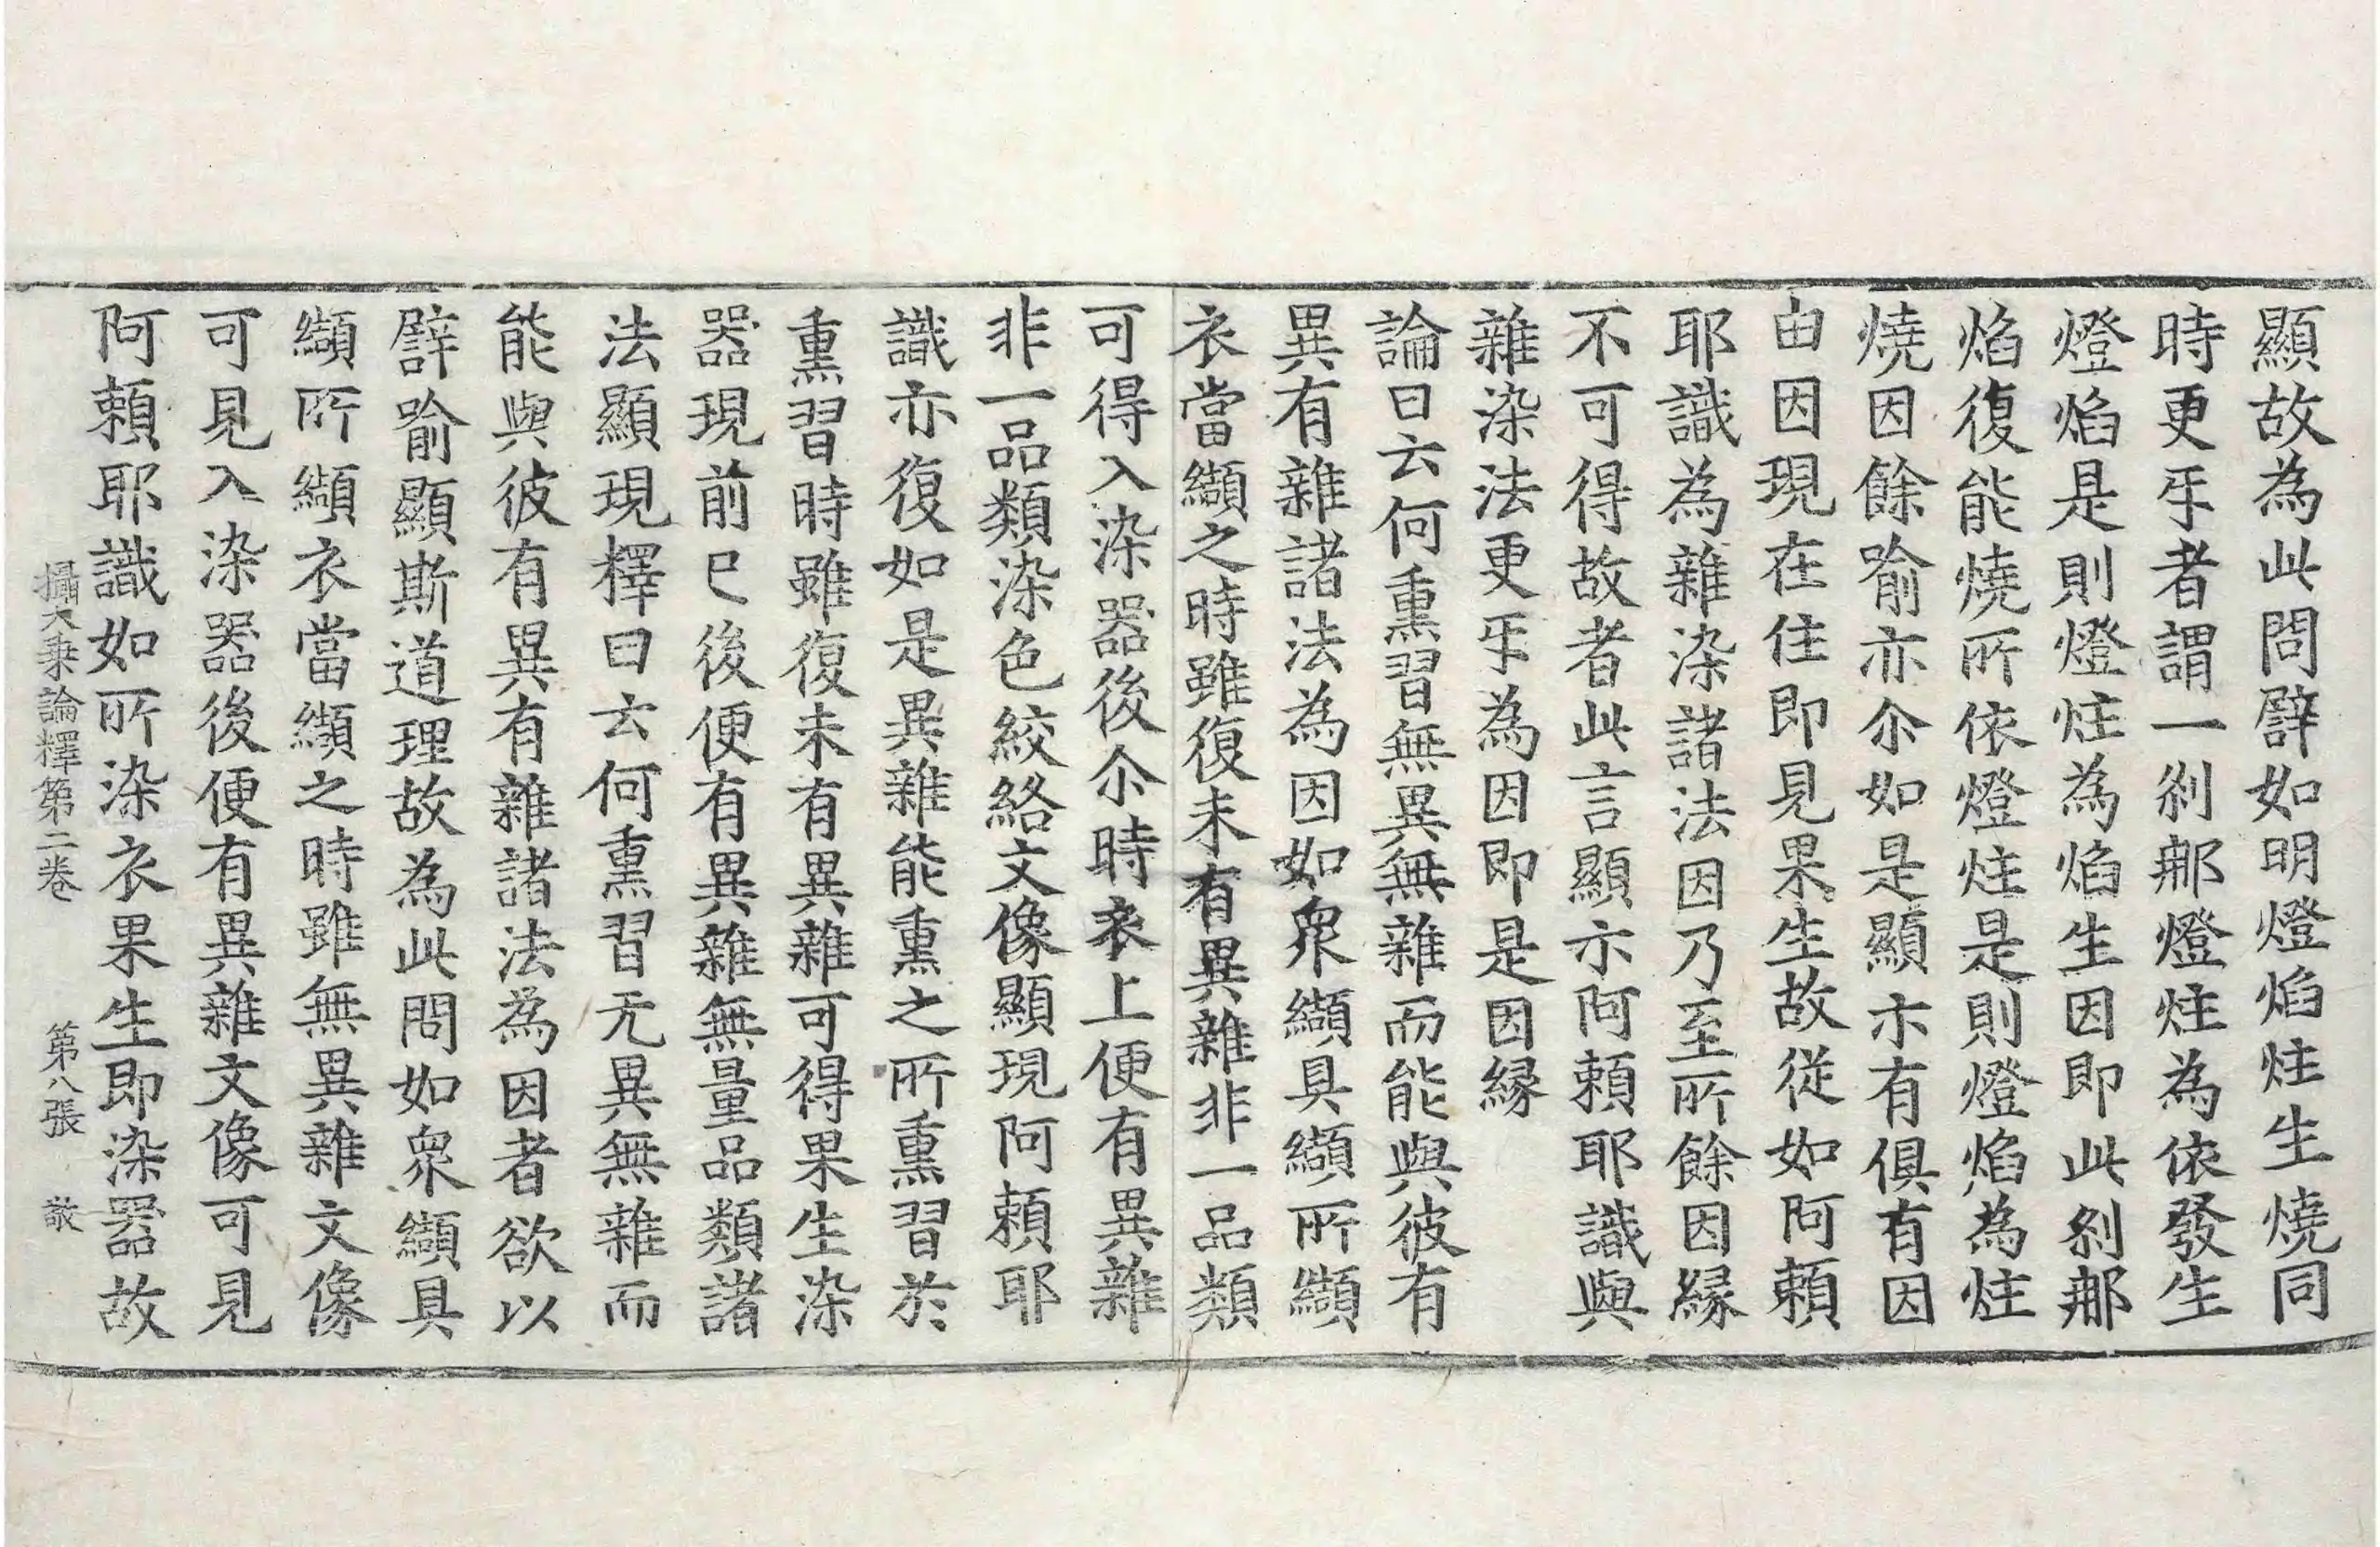 顯故為此問譬如明燈焰炷生燒同
時更㸦者謂一刹那燈炷為依發生
燈焰是則燈炷為焰生因即此刹那
焰復能燒所依燈炷是則燈焰為炷
燒因餘喻亦尒如是顯示有俱有因
由因現在住即見果生故從如阿賴
耶識為雜染諸法因乃至所餘因緣
不可得故者此言顯示阿賴耶識與
雜染法更㸦為因即是因緣
論曰云何熏習無異無雜而能與彼有
異有雜諸法為因如衆纈具纈所纈
衣當纈之時雖復未有異雜非一品類
可得入染器後尒時衣上便有異雜
非一品類染色絞絡文像顯現阿賴耶
識亦復如是異雜能熏之所熏習於
熏習時雖復未有異雜可得果生染
器現前已後便有異雜無量品類諸
法顯現釋曰云何熏習无異無雜而
能與彼有異有雜諸法為因者欲以
譬喻顯斯道理故為此問如衆纈具
纈所纈衣當纈之時雖無異雜文像
可見入染器後便有異雜文像可見
阿賴耶識如所染衣果生即染器故
攝大乘論釋第二卷 第八張 敬